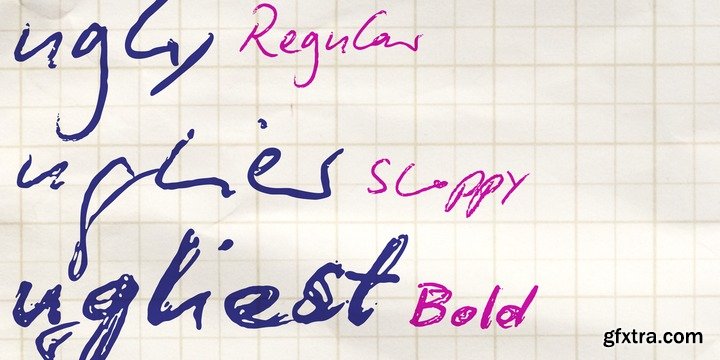 ugly Regular
uglier Sloppy
ugliest Bold
gfxtra.com